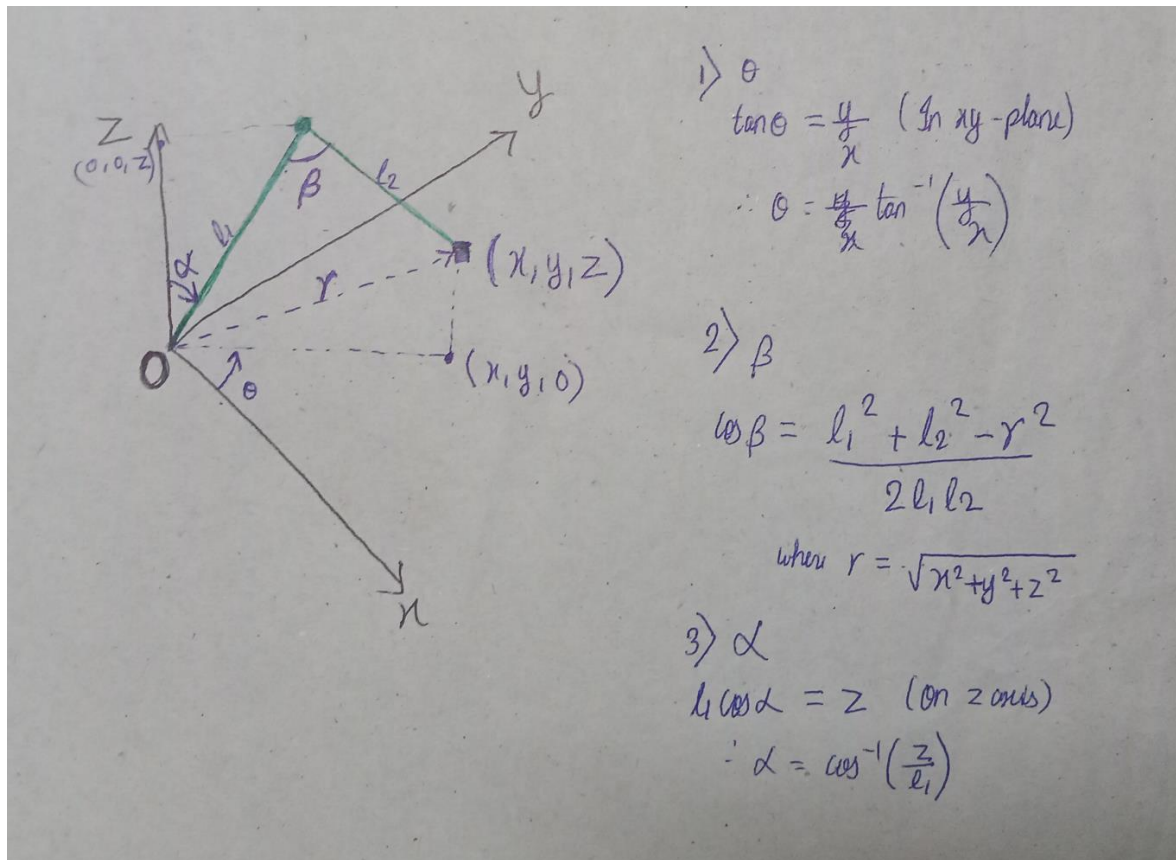 Z
(0,0,z)
y
β
l₂
l₁
α
r
(x,y,z)
O
θ
(x,y,0)
x
1) θ
tanθ = y/x (In xy-plane)
∴ θ = tan⁻¹(y/x)
2) β
cosβ = l₁² + l₂² - r² / 2l₁l₂
where r = √x²+y²+z²
3) α
l₁cosα = z (on z axis)
∴ α = cos⁻¹(z/l₁)